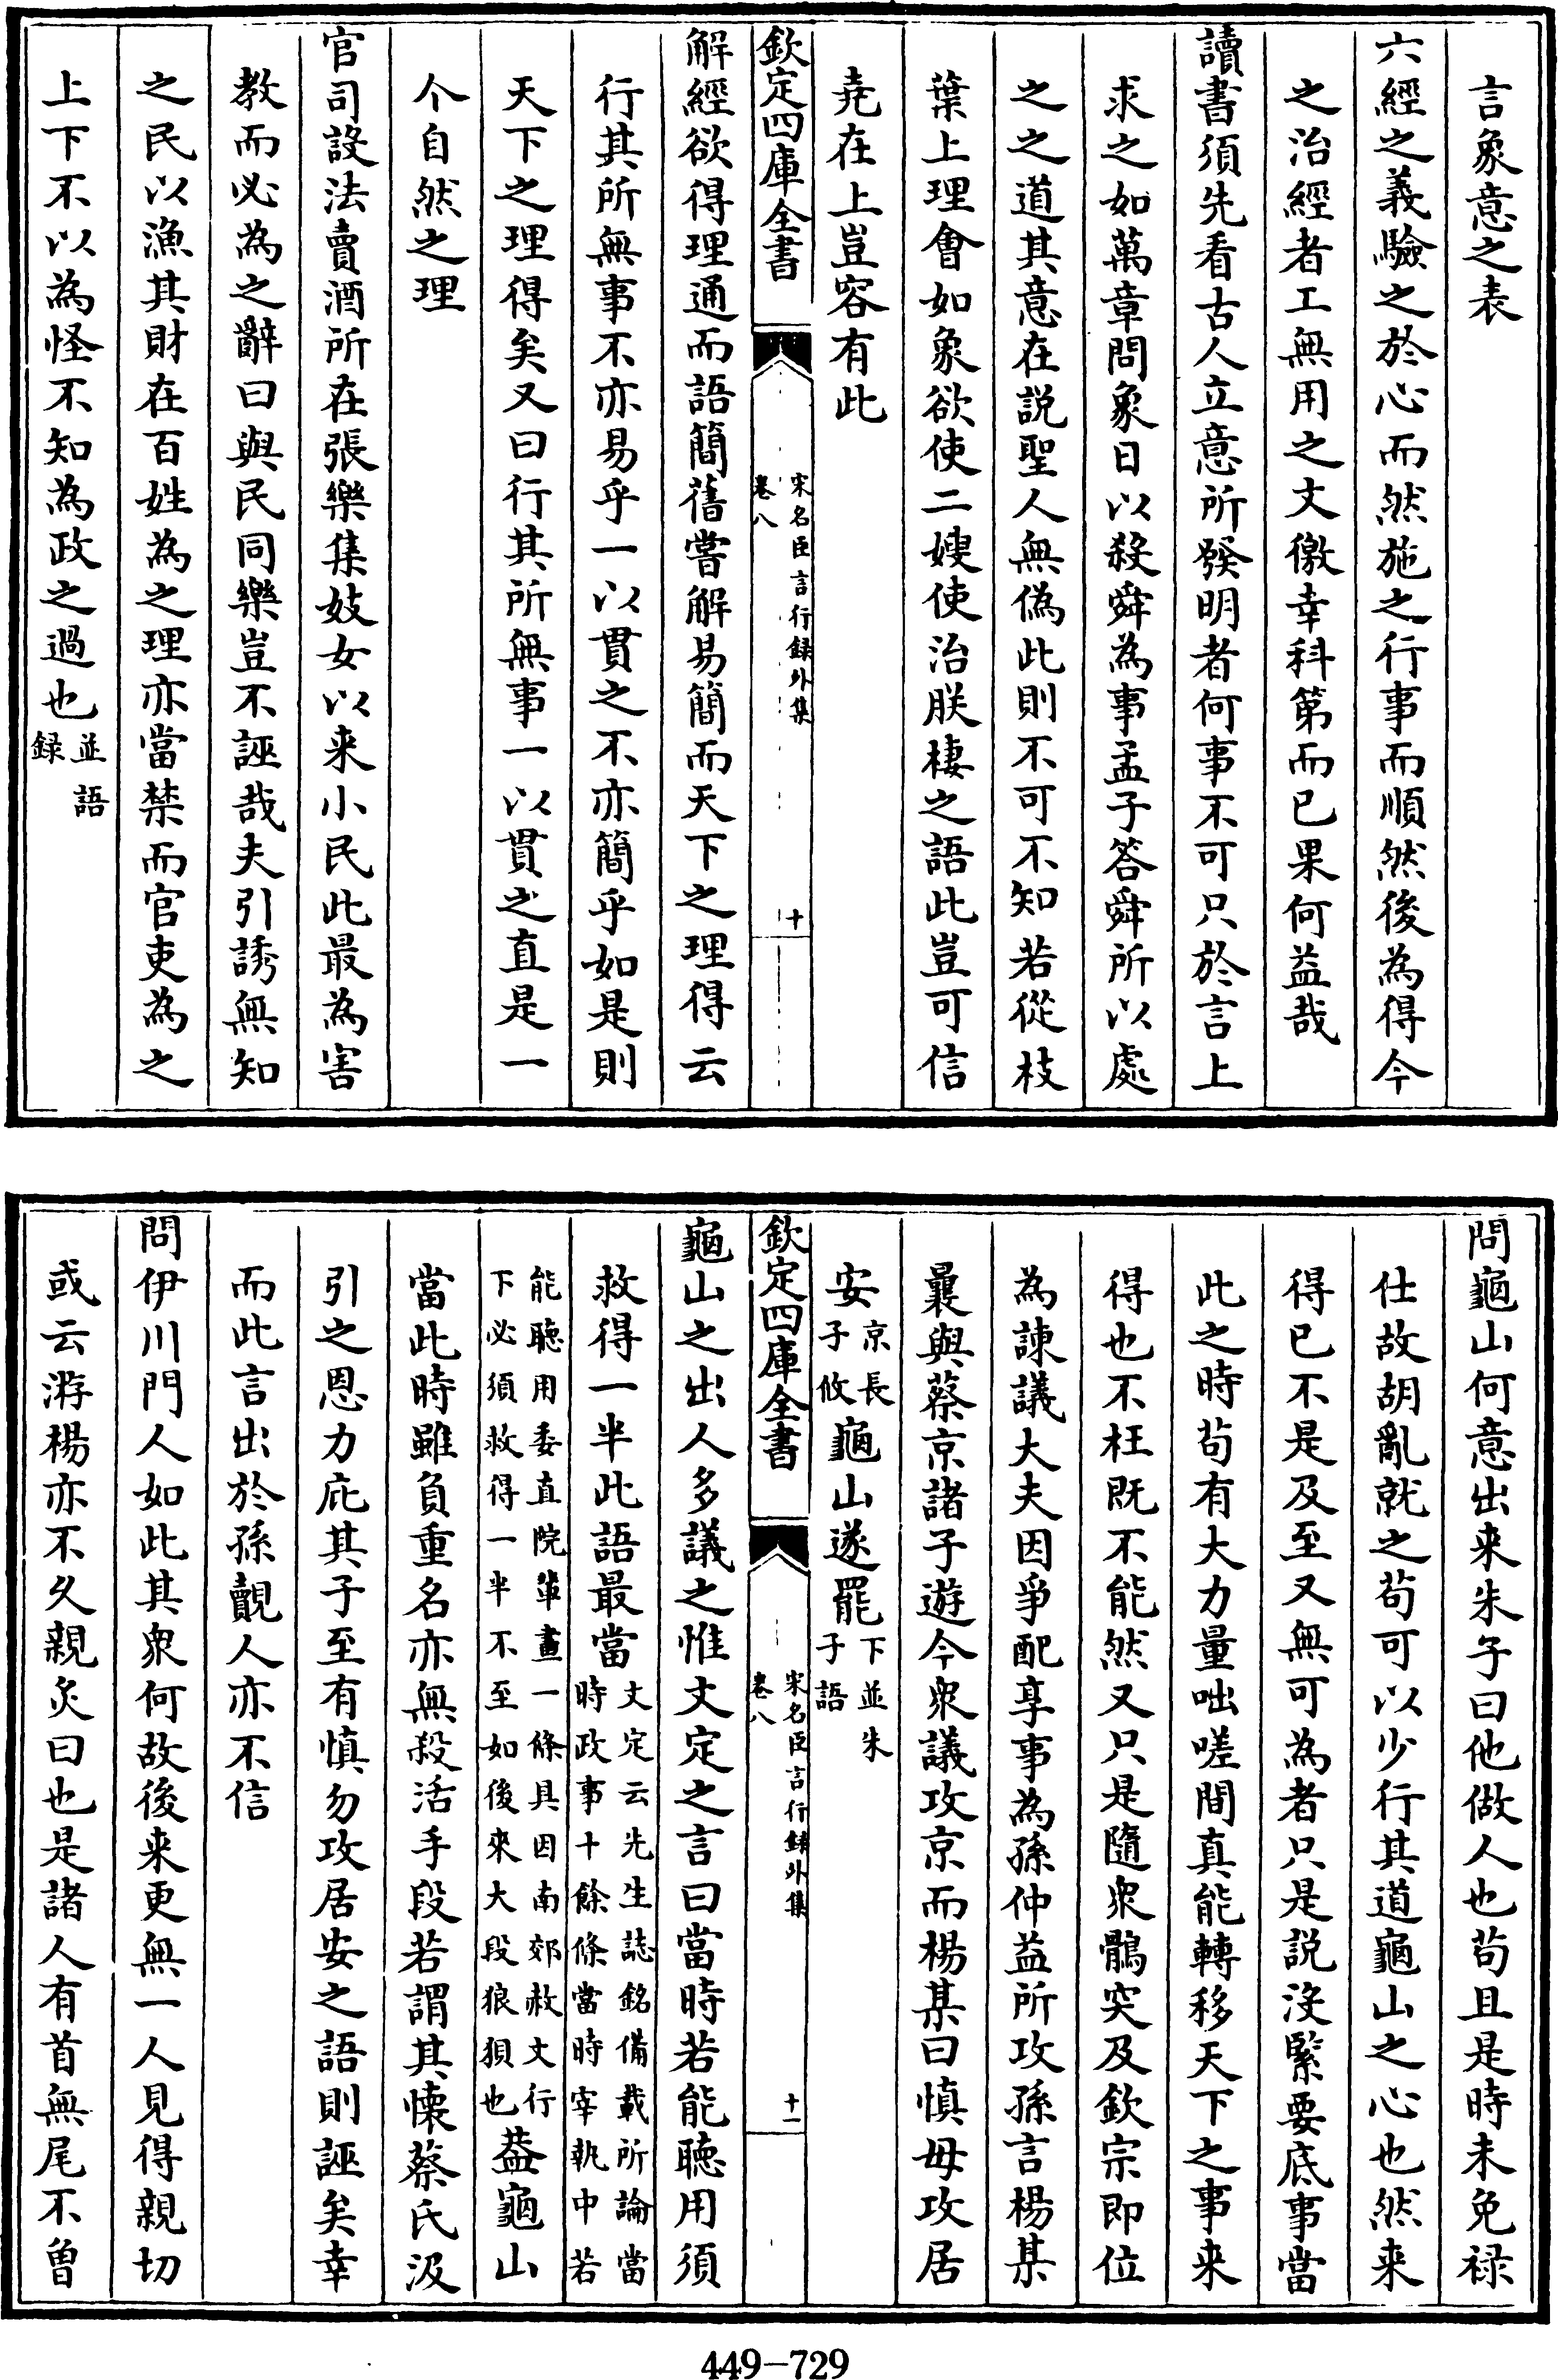 言象意之表
六經之義驗之於心而然施之行事而順然後為得今
之治經者工無用之文徼幸科第而已果何益哉
讀書須先看古人立意所發明者何事不可只於言上
求之如萬章問象日以殺舜為事孟子答舜所以處
之之道其意在説聖人無偽此則不可不知若從枝
葉上理會如象欲使二嫂使治朕棲之語此豈可信
堯在上豈容有此
欽定四庫全書
宋名臣言行録外集
卷八
十
解經欲得理通而語簡舊嘗解易簡而天下之理得云
行其所無事不亦易乎一以貫之不亦簡乎如是則
天下之理得矣又曰行其所無事一以貫之直是一
个自然之理
官司設法賣酒所在張樂集妓女以来小民此最為害
教而必為之辭曰與民同樂豈不誣哉夫引誘無知
之民以漁其財在百姓為之理亦當禁而官吏為之
上下不以為怪不知為政之過也並語
録
問龜山何意出来朱子曰他做人也苟且是時未免禄
仕故胡亂就之苟可以少行其道龜山之心也然来
得已不是及至又無可為者只是説沒緊要底事當
此之時苟有大力量咄嗟間真能轉移天下之事来
得也不枉既不能然又只是隨衆鶻突及欽宗即位
為諫議大夫因爭配享事為孫仲益所攻孫言楊某
曩與蔡京諸子遊今衆議攻京而楊某曰慎毋攻居
安京長
子攸龜山遂罷下並朱
子語
欽定四庫全書
宋名臣言行録外集
卷八
十一
龜山之出人多議之惟文定之言曰當時若能聴用須
救得一半此語最當文定云先生誌銘備載所論當
時政事十餘條當時宰執中若
能聴用委直院輩畫一條具因南郊赦文行
下必須救得一半不至如後來大段狼狽也葢龜山
當此時雖負重名亦無殺活手段若謂其懐蔡氏汲
引之恩力庇其子至有慎勿攻居安之語則誣矣幸
而此言出於孫覿人亦不信
問伊川門人如此其衆何故後来更無一人見得親切
或云游楊亦不久親炙曰也是諸人有首無尾不曽
449-729